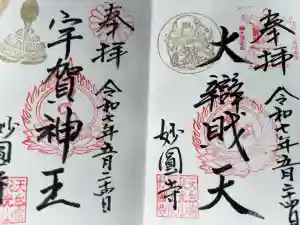 奉拝
大辯財天
令和七年五月二十四日
妙圓寺
奉拝
宇賀神王
令和七年五月二十四日
妙圓寺